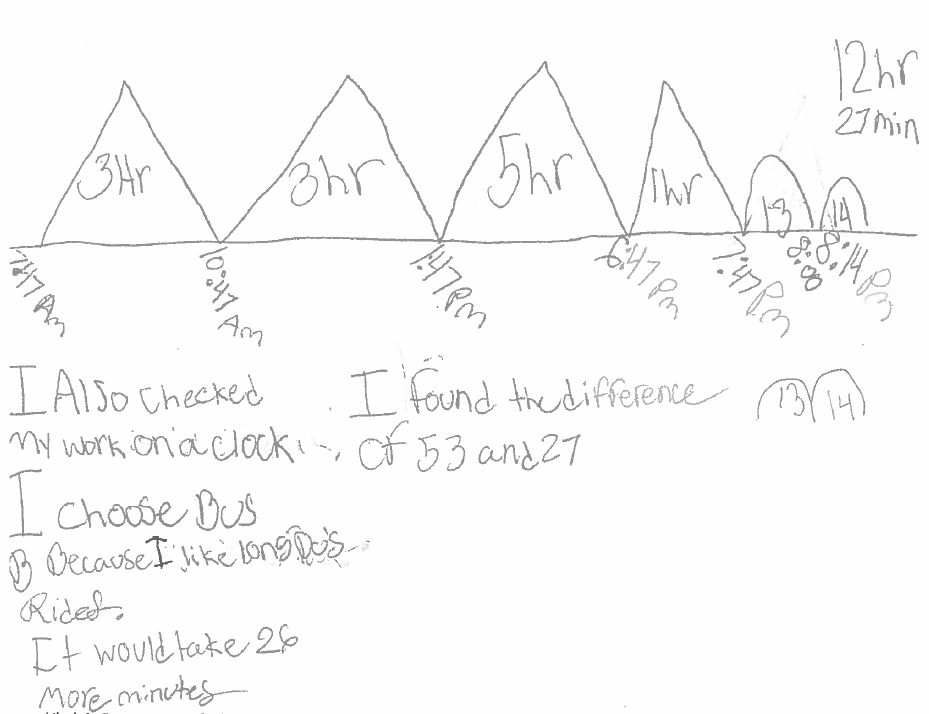 12hr
27min
3Hr
3hr
5hr
1hr
13
14
7:47 Am
10:47 Am
1:47 Pm
6:47 Pm
7:47 Pm
8:8
8:14 Pm
I Also checked
my work on a clock.
I found the difference
of 53 and 27
13 14
I choose Bus
B Because I like long Bus
Rides.
It would take 26
more minutes